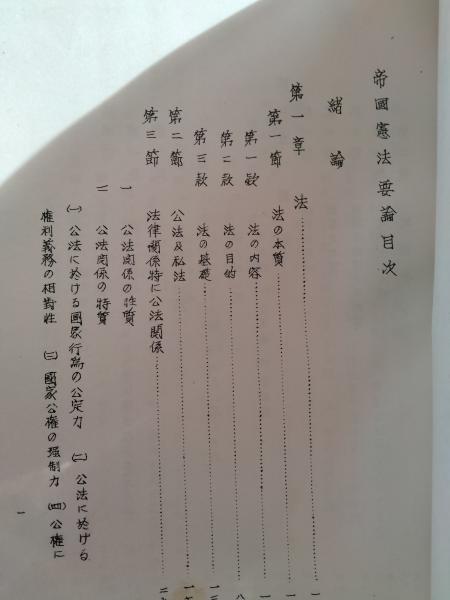 帝國憲法要論目次
緒論
第一章 法
第一節 法の本質
第一款 法の内容
第二款 法の目的
第三款 法の基礎
第二節 公法及私法
第三節 法律關係特に公法關係
一 公法關係の性質
二 公法關係の特質
㈠ 公法に於ける國家行為の公定力 ㈡ 公法に於ける
権利義務の相對性 ㈢ 國家公権の强制力 ㈣ 公権に
一